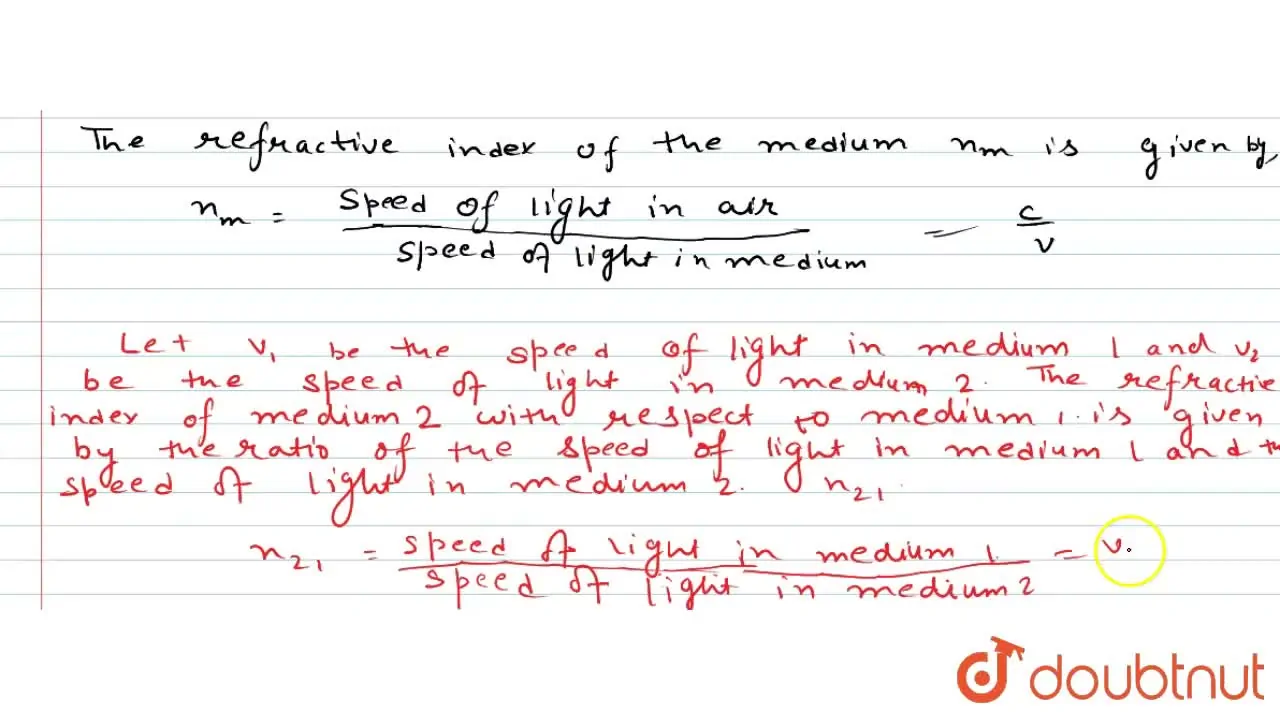 The refractive index of the medium nm is given by,
nm = speed of light in air / speed of light in medium = c/v
Let v1 be the speed of light in medium 1 and v2
be the speed of light in medium 2. The refractive
index of medium 2 with respect to medium 1. is given
by the ratio of the speed of light in medium 1 and the
speed of light in medium 2. n21.
n21 = speed of light in medium 1. / speed of light in medium 2 = v.
doubtnut